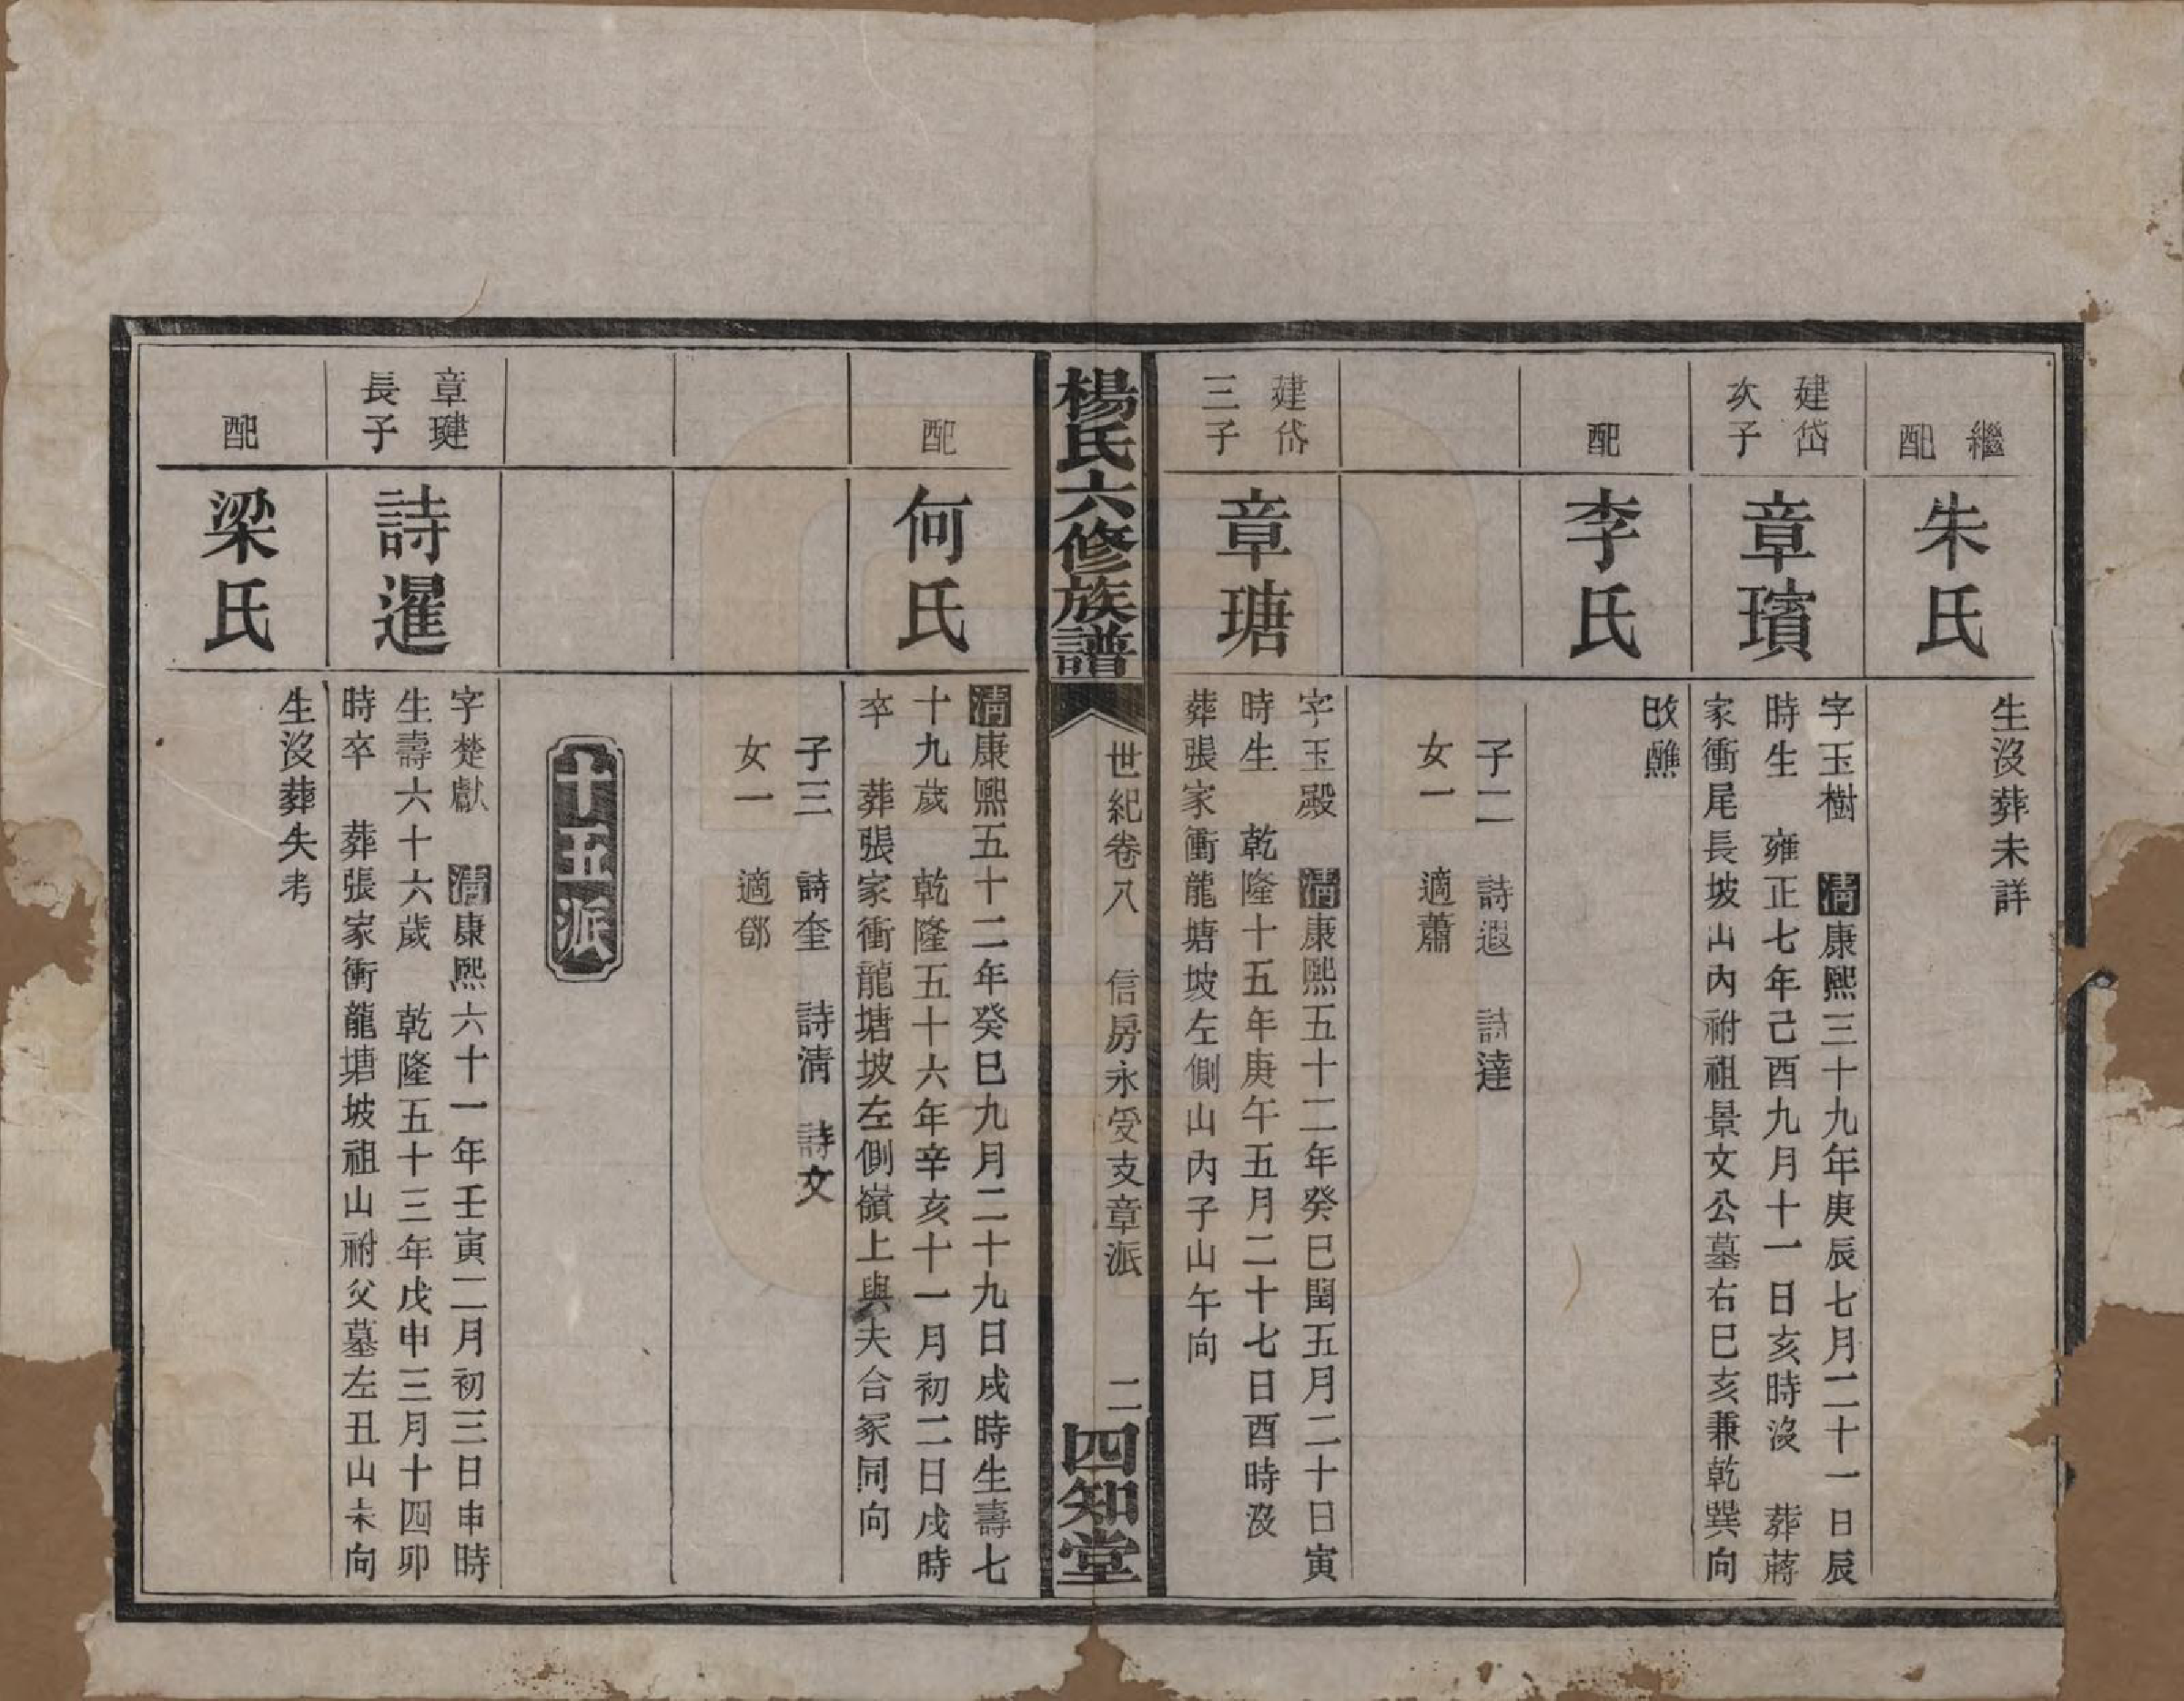 繼配
朱氏
生沒葬未詳
建岱次子
章璸
字玉樹　清康熙三十九年庚辰七月二十一日辰
時生　雍正七年己酉九月十一日亥時沒　葬蔣
家衝尾長坡山內祔祖景文公墓右巳亥兼乾巽向
配
李氏
改醮
子二　詩遐　詩達
女一　適蕭
建岱三子
章瑭
字玉殿　清康熙五十二年癸巳閏五月二十日寅
時生　乾隆十五年庚午五月二十七日酉時沒
葬張家衝龍塘坡左側山內子山午向
楊氏六修族譜
世紀卷八　信房永受支章派　二
四知堂
配
何氏
清康熙五十二年癸巳九月二十九日戌時生壽七
十九歲　乾隆五十六年辛亥十一月初二日戌時
卒　葬張家衝龍塘坡左側嶺上與夫合冢同向
子三　詩奎　詩清　詩文
女一　適鄧
十五派
章琎長子
詩暹
字楚獻　清康熙六十一年壬寅二月初三日申時
生壽六十六歲　乾隆五十三年戊申三月十四卯
時卒　葬張家衝龍塘坡祖山祔父墓左丑山未向
配
梁氏
生沒葬失考